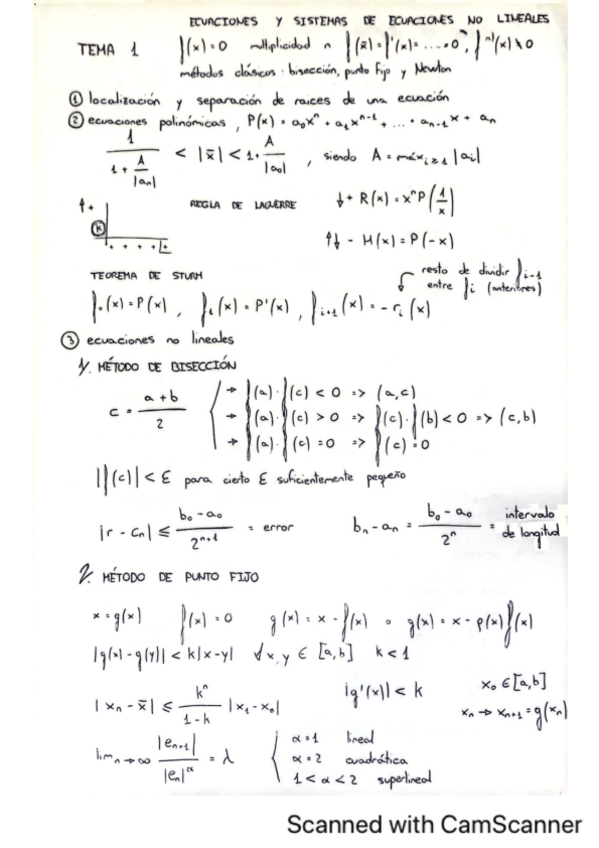 ECUACIONES Y SISTEMAS DE ECUACIONES NO LINEALES
TEMA 1 f(x)=0 multiplicidad n f(x̄)=f'(x)=.....=0, fⁿ⁾(x)\0
métodos clásicos: bisección, punto fijo y Newton
① localización y separación de raices de una ecuación
② ecuaciones polinómicas, P(x)=a₀xⁿ+a₁xⁿ⁻¹+...+aₙ₋₁x+aₙ
1/(1+A/|aₙ|) < |x̄| < 1+A/|a₀|, siendo A = máx i≥1 |aᵢ|
REGLA DE LAGUERRE
↓+ R(x)=xⁿP(1/x)
↑↓- H(x)=P(-x)
TEOREMA DE STURM
resto de dividir fᵢ₋₁
entre fᵢ (anteriores)
f₀(x)=P(x), f₁(x)=P'(x), fᵢ₊₁(x)=-rᵢ(x)
③ ecuaciones no lineales
1/. MÉTODO DE BISECCIÓN
c = (a+b)/2
→ f(a)·f(c) < 0 => (a,c)
→ f(a)·f(c) > 0 => f(c)·f(b) < 0 => (c,b)
→ f(a)·f(c) = 0 => f(c) = 0
|f(c)| < E para cierto E suficientemente pequeño
|r - cₙ| ≤ (b₀-a₀)/2ⁿ⁺¹ = error bₙ-aₙ = (b₀-a₀)/2ⁿ = intervalo de longitud
2/. MÉTODO DE PUNTO FIJO
x=g(x) f(x)=0 g(x)=x-f(x) o g(x)=x-p(x)f(x)
|g(x)-g(y)| < k|x-y| ∀x,y ∈ [a,b] k<1
|xₙ-x̄| ≤ kⁿ/(1-k) |x₁-x₀| |g'(x)| < k x₀ ∈ [a,b]
xₙ → xₙ₊₁=g(xₙ)
lim n→∞ |eₙ₊₁|/|eₙ|^α = λ
α=1 lineal
α=2 cuadrática
1<α<2 superlineal
Scanned with CamScanner